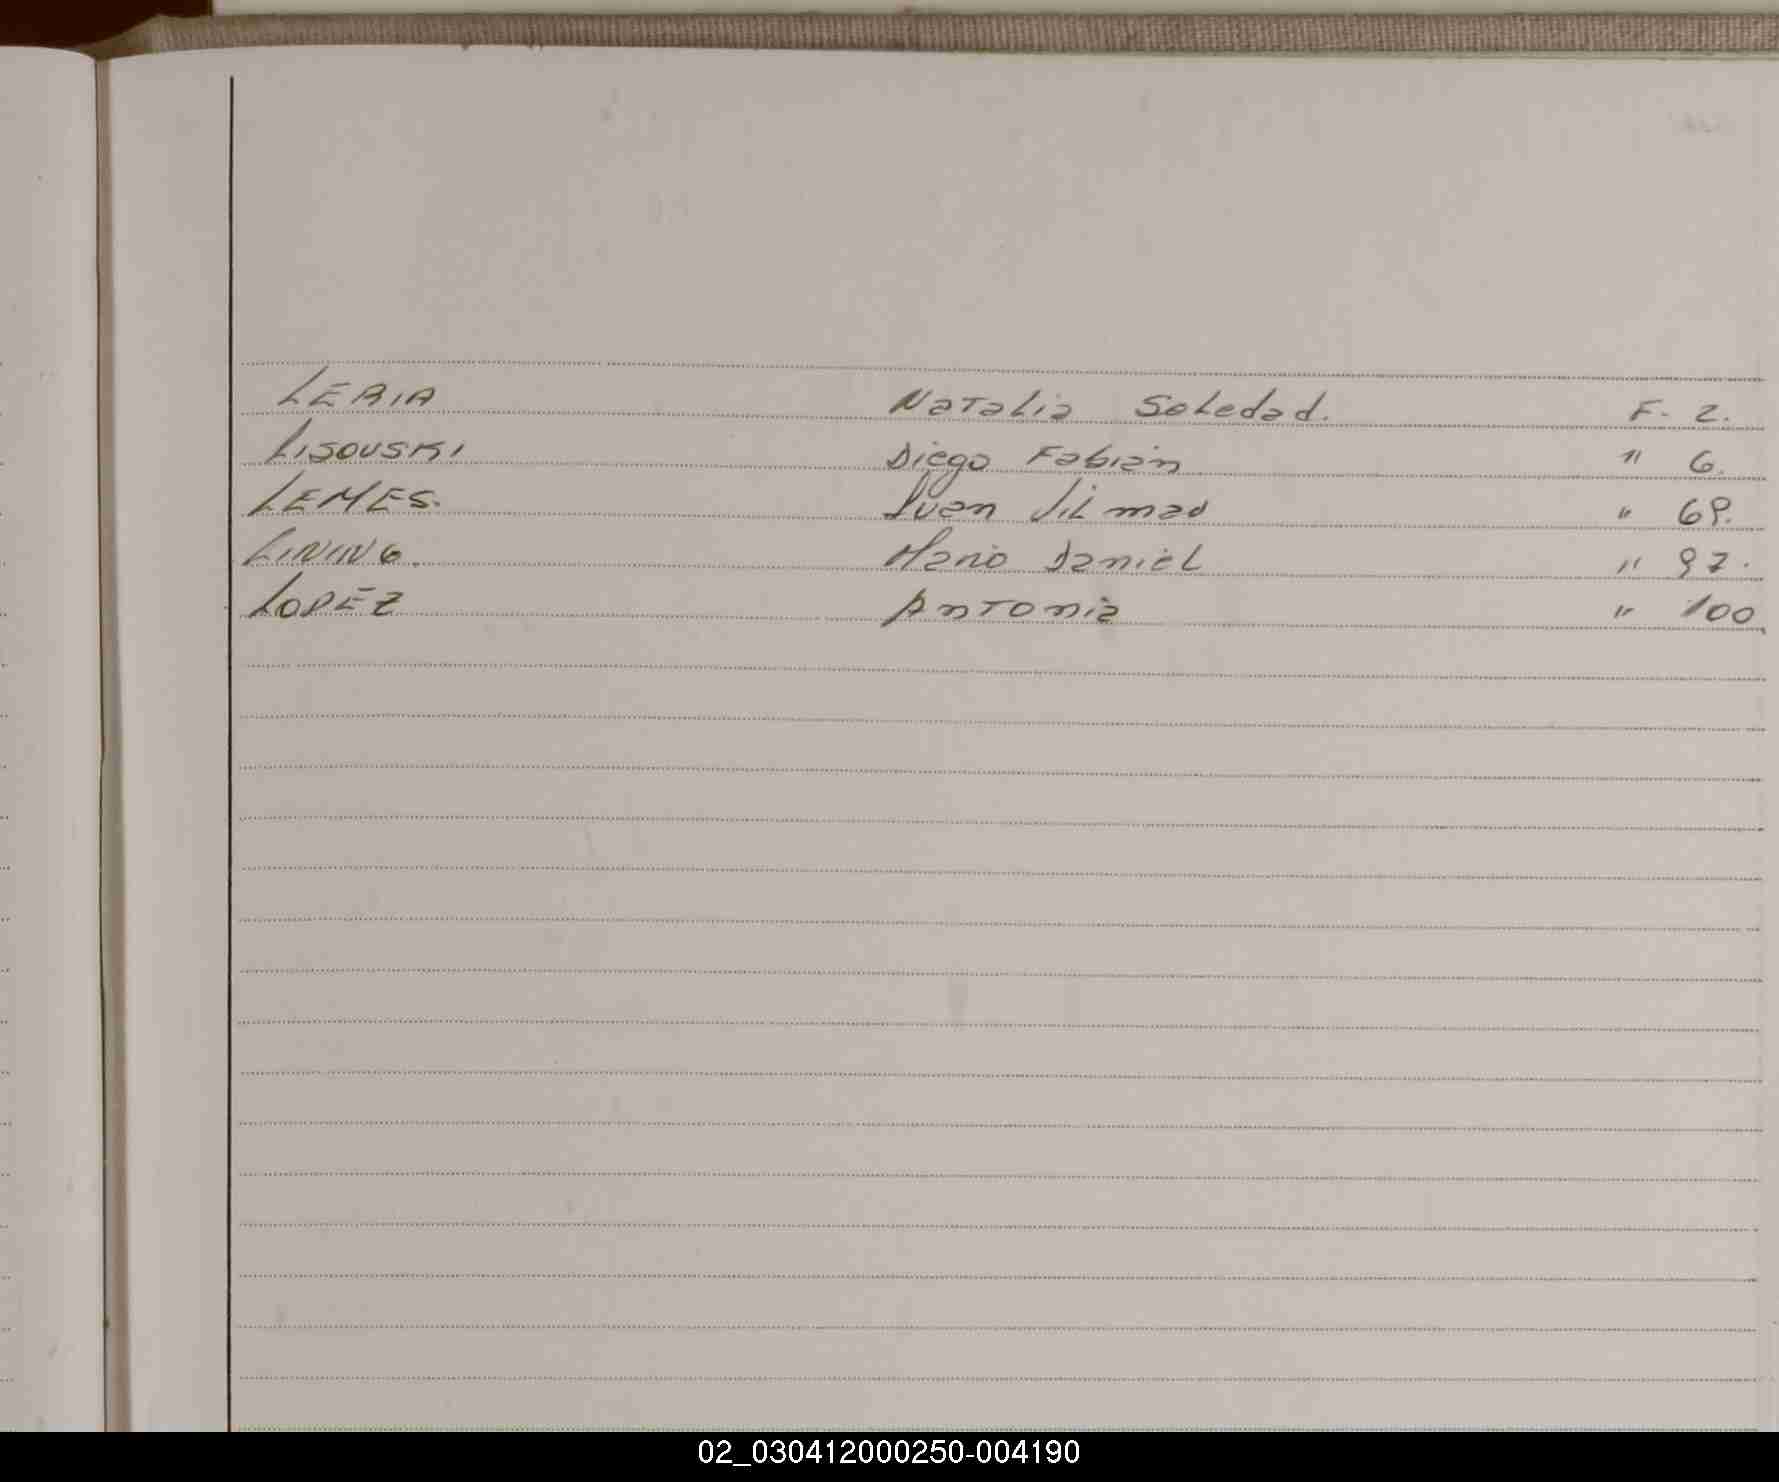 LERIA Natalia Soledad. F. 2.
LISOUSKI Diego Fabián " 6.
LEMES. Juan Vilmao " 69.
LINING. Mario Daniel " 97.
LOPEZ Antonia " 100
02_030412000250-004190